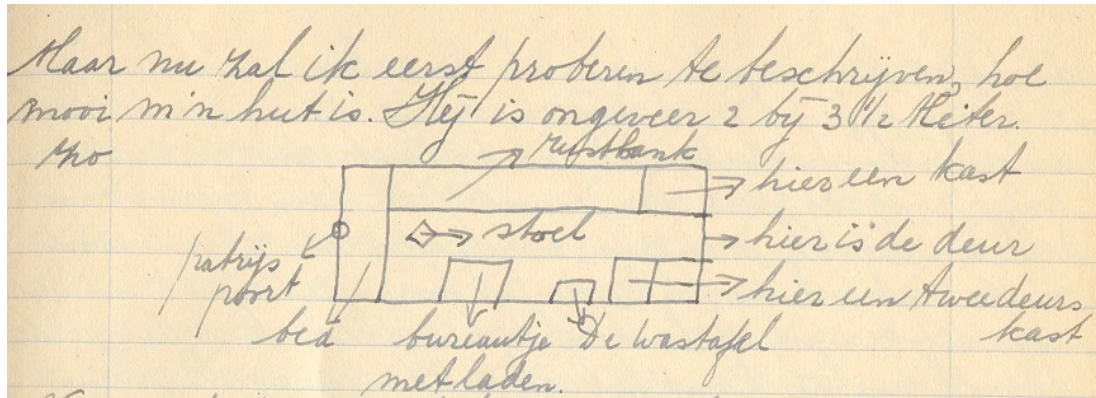 Maar nu zal ik eerst proberen te beschrijven, hoe
mooi m'n hut is. Hij is ongeveer 2 bij 3 1/2 Meter.
zo
rustbank
hier een kast
stoel
hier is de deur
patrijs
poort
hier een tweedeurs
kast
bed
bureautje
met laden.
De wastafel